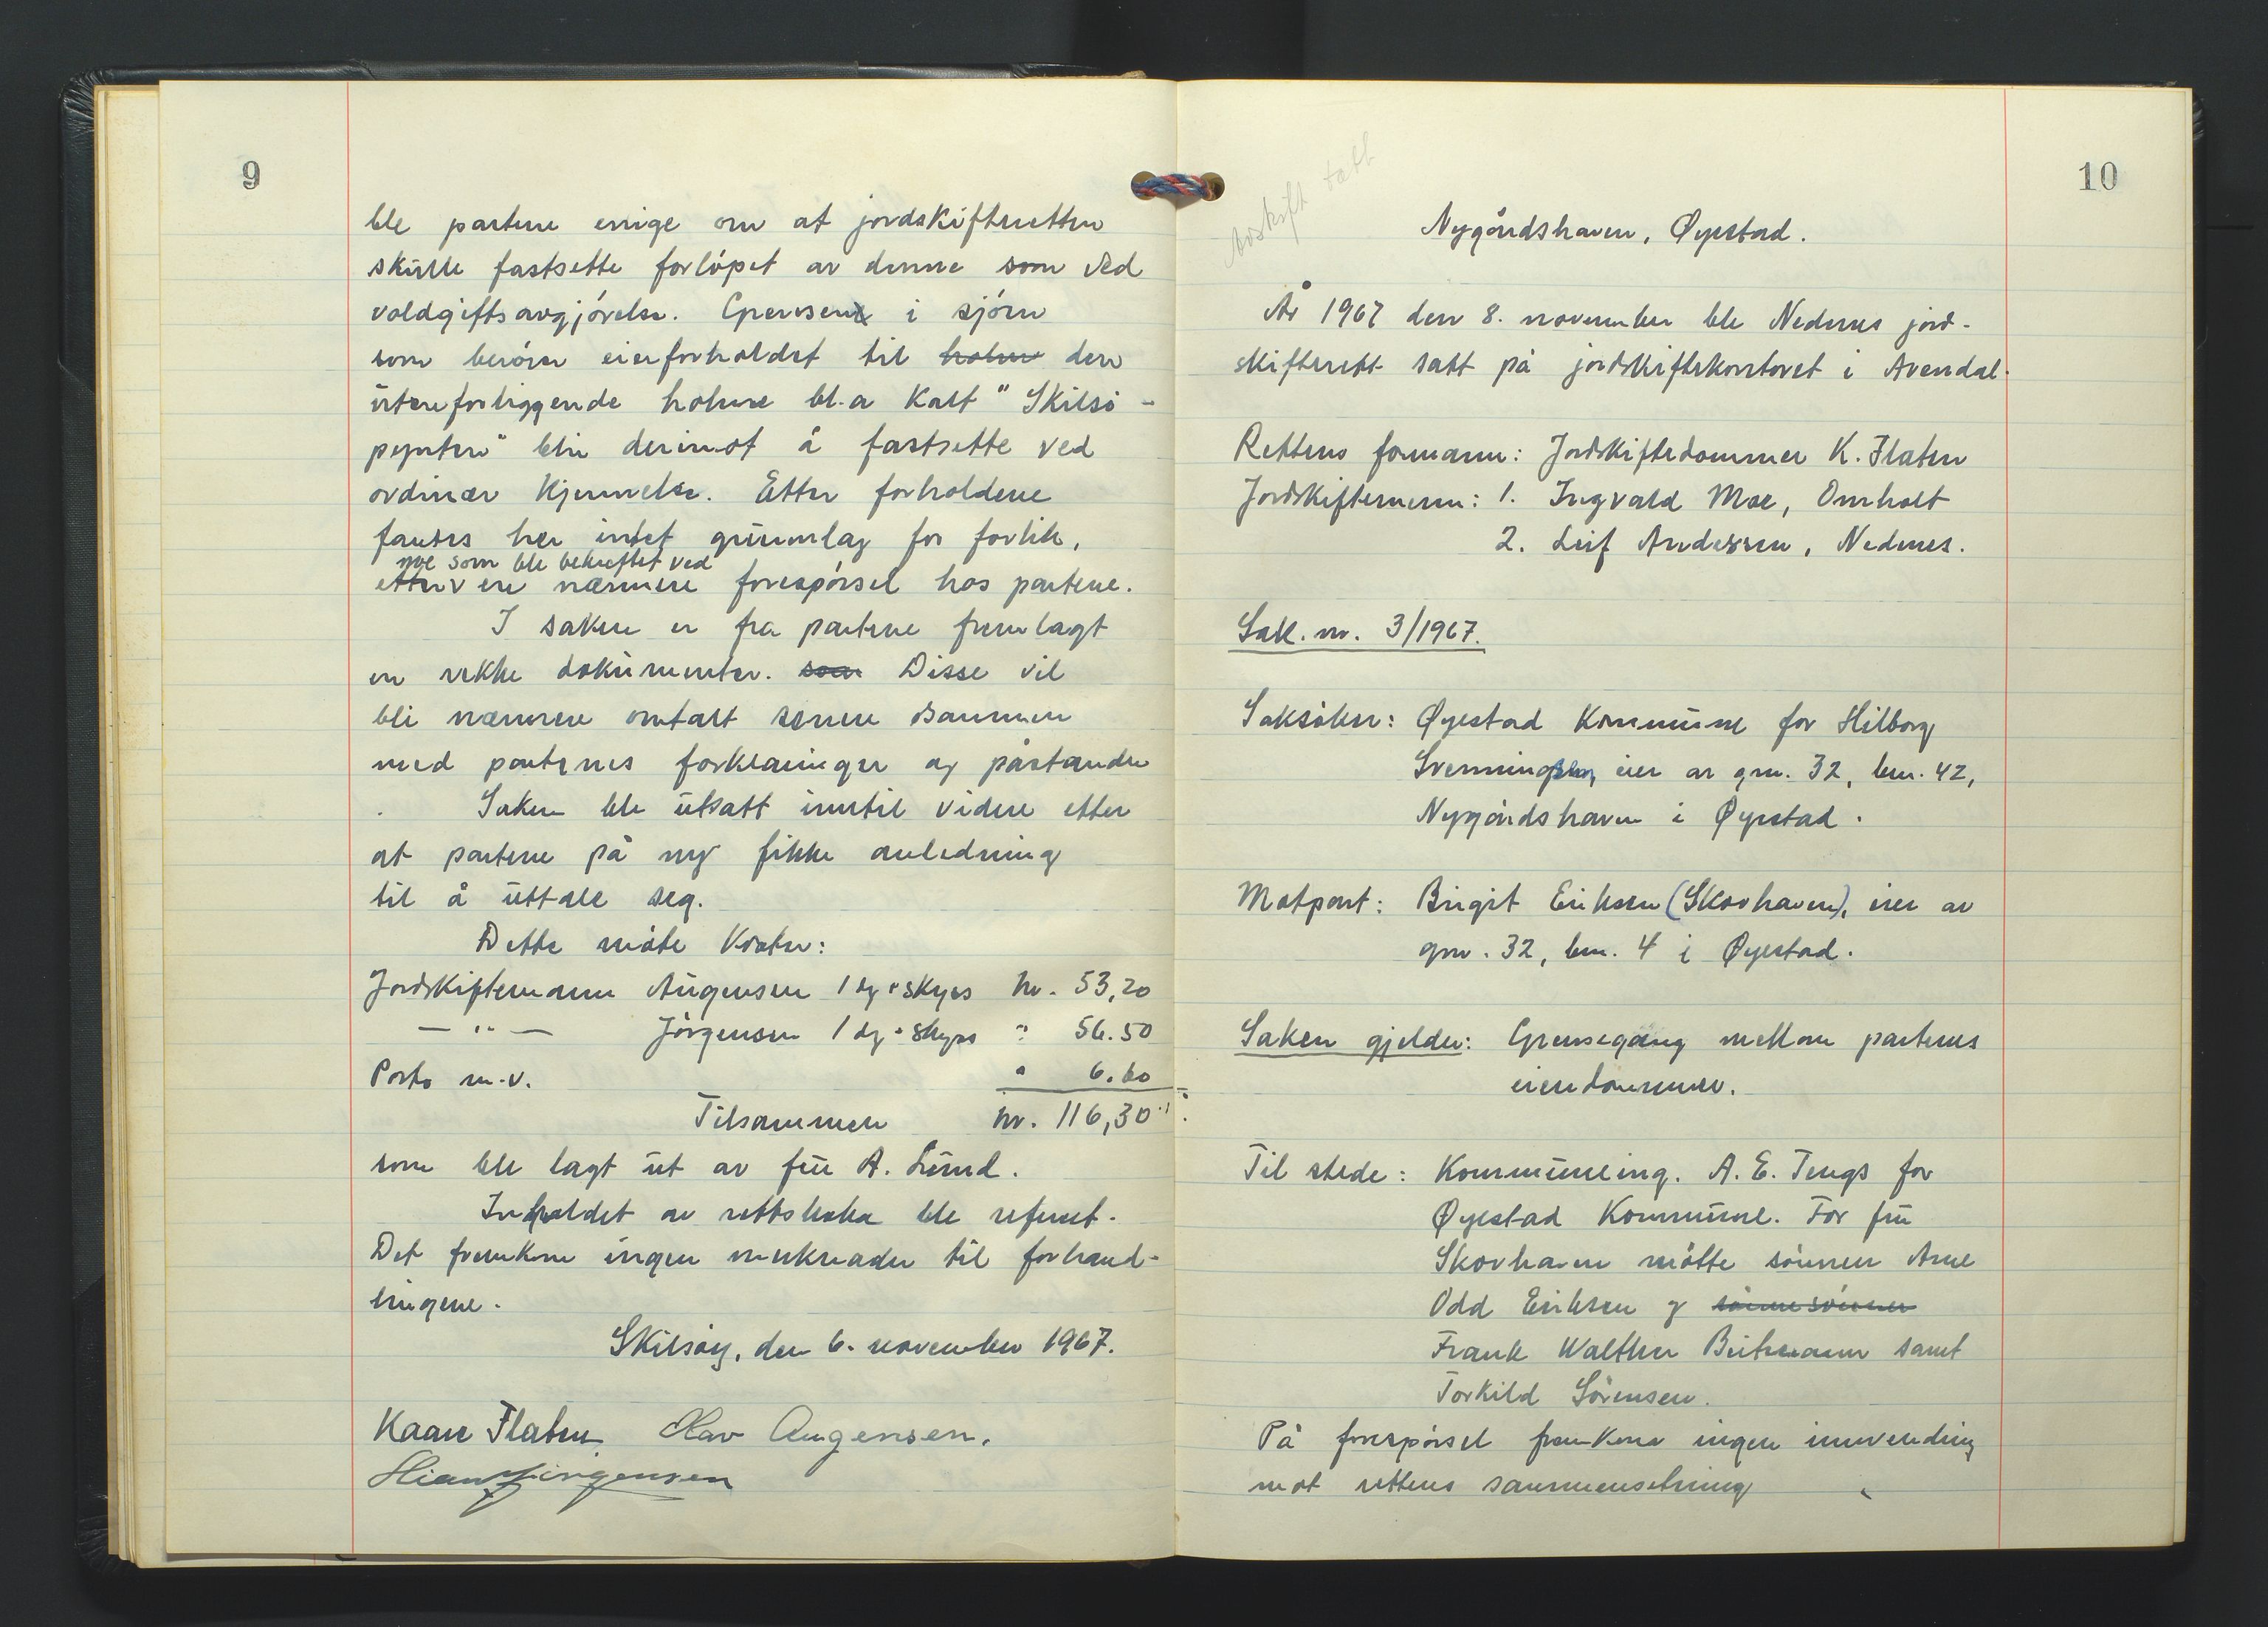 9
ble partene enige om at jordskifteretten
skulle fastsette forløpet av denne som ved
voldgiftsavgjørelse. Grensen i sjøen
som berører eierforholdet til holme den
utenforliggende holme bl.a kalt "Skilsø-
pynten" blir derimot å fastsette ved
ordinær kjennelse. Etter forholdene
fantes her intet grunnlag for forlik,
noe som ble bekreftet ved
etter en nærmere forespørsel hos partene.
I saken er fra partene fremlagt
en rekke dokumenter. som Disse vil
bli nærmere omtalt senere sammen
med partenes forklaringer og påstander
. Saken ble utsatt inntil videre etter
at partene på ny fikk anledning
til å uttale seg.
Dette møte koster:
Jordskiftemann Augensen 1 dg + skyss kr. 53,20
— " — Jörgensen 1 dg + skyss " 56.50
Porto m.v. " 6.60
Tilsammen kr. 116,30
som ble lagt ut av fru A. Lund.
Innholdet av rettsboka ble referert.
Det fremkom ingen merknader til forhand-
lingene.
Skilsøy, den 6. november 1967.
Kaare Flaten Olav Augensen.
Jörgensen
10
Avskrift tatt
Nygårdshaven, Øyestad.
År 1967 den 8. november ble Nedenes jord-
skifterett satt på jordskiftekontoret i Arendal.
Rettens formann: Jordskiftedommer K. Flaten
Jordskiftemenn: 1. Ingvald Moe, Omholt
2. Leif Andersen, Nedenes.
Sak. nr. 3/1967.
Saksøker: Øyestad kommune for Hilborg
eier av gnr. 32, bnr. 42,
Nygårdshaven i Øyestad.
Motpart: Birgit Eriksen (Skovhaven), eier av
gnr. 32, bnr. 4 i Øyestad.
Saken gjelder: Grensegang mellom partenes
eiendommer.
Til stede: Kommuneing. A. E. Tengs for
Øyestad kommune. For fru
Skovhaven møtte sønnen Arne
Odd Eriksen og sønnesønnen
Frank Walther samt
Torkild Sørensen.
På forespørsel fremkom ingen innvending
mot rettens sammensetning